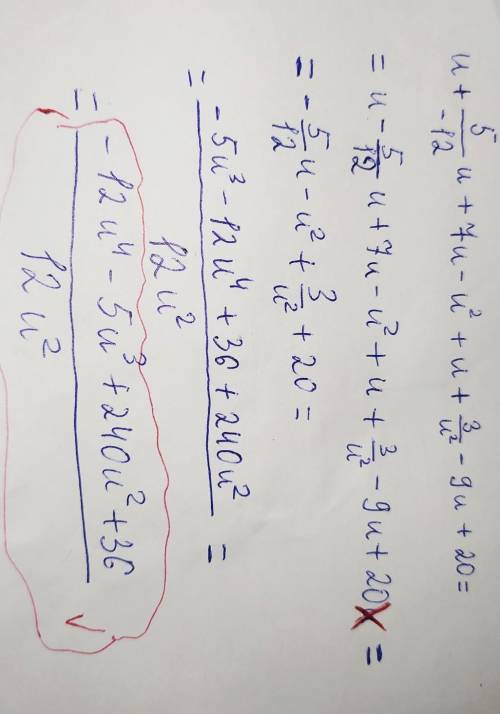 u + 5/-12 u + 7u - u² + u + 3/u² - 9u + 20 =
= u - 5/12 u + 7u - u² + u + 3/u² - 9u + 20 =
= - 5/12 u - u² + 3/u² + 20 =
= (-5u³ - 12u⁴ + 36 + 240u²)/(12u²) =
= (-12u⁴ - 5u³ + 240u² + 36)/(12u²) ✓